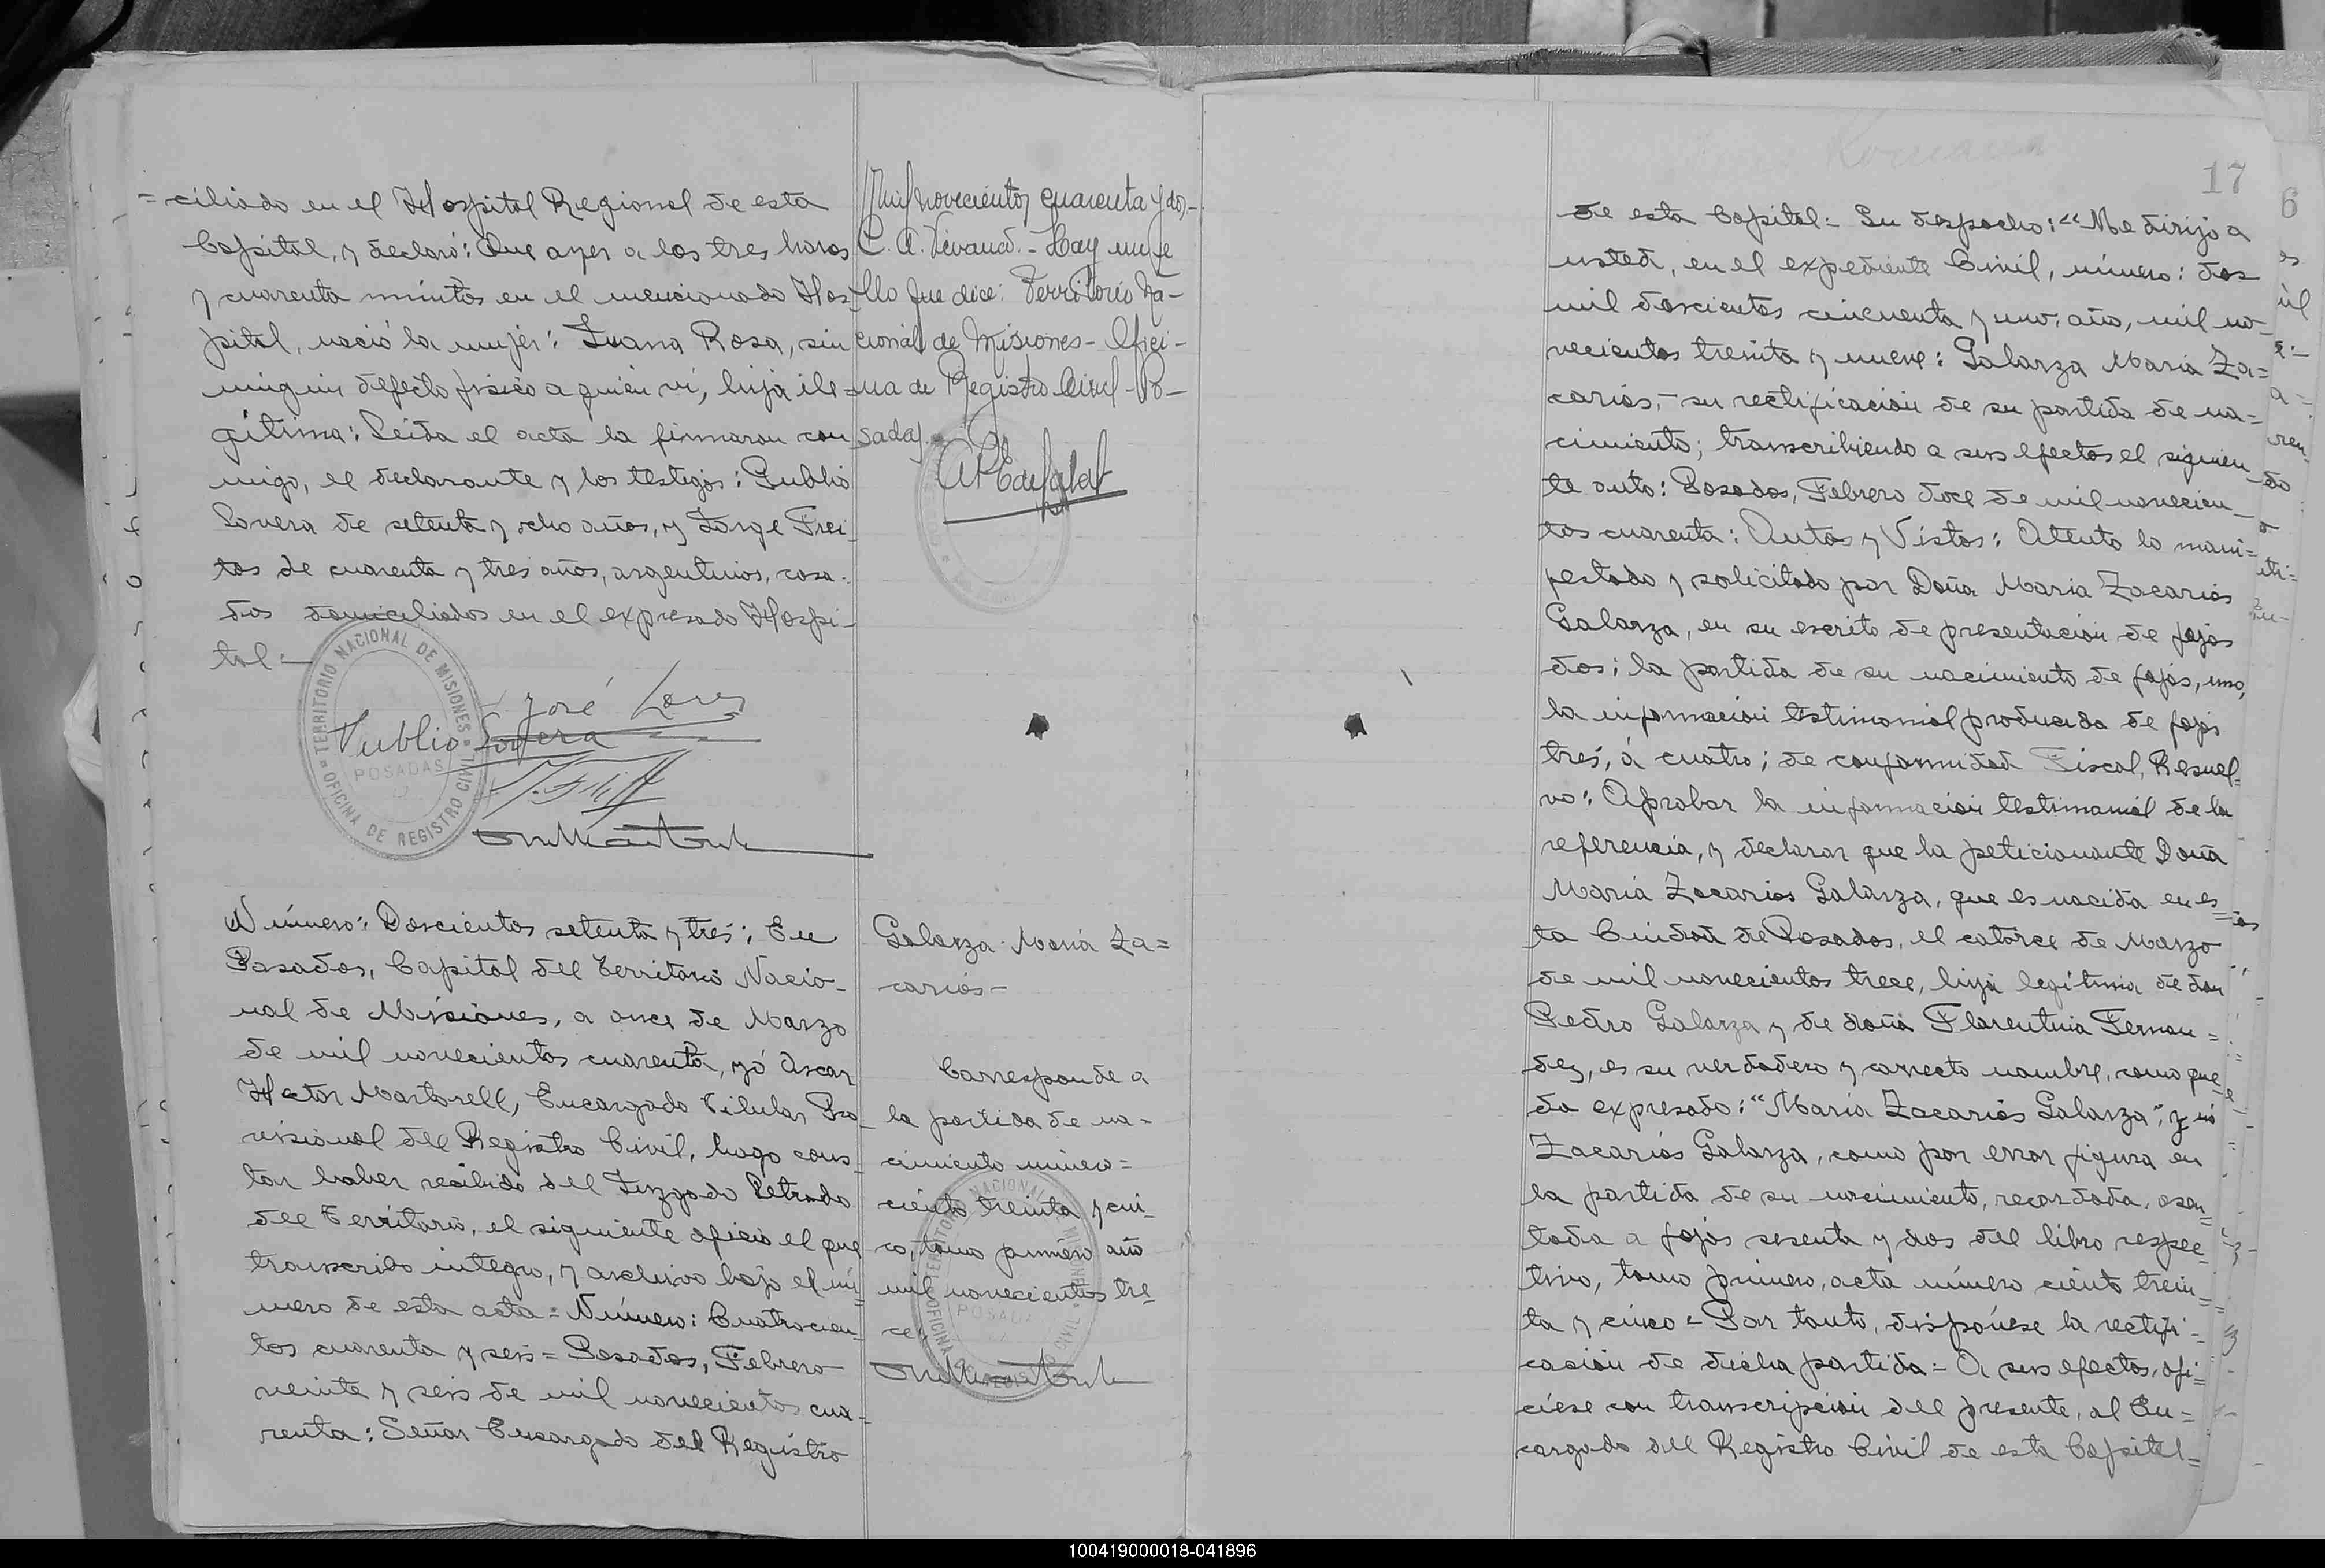 = ciliado en el Hospital Regional de esta
Capital, y declaró: Que ayer a las tres horas
y cuarenta minutos en el mencionado Hos-
pital, nació la mujer: Juana Rosa, sin
ningun defecto fisico a quien vi, hija ile=
gítima: Leida el acta la firmaron con
migo, el declarante y los testigos: Publio
Lovera de setenta y ocho años, y Jorge Frei
tas de cuarenta y tres años, argentinos, casa-
dos domiciliados en el expresado Hospi-
tal.-
TERRITORIO NACIONAL DE MISIONES
OFICINA DE REGISTRO CIVIL
POSADAS
José
Publio Lovera
Número: Doscientos setenta y tres: En
Posadas, Capital del Territorio Nacio-
nal de Misiones, a once de Marzo
de mil novecientos cuarenta, yó Oscar
Hector Martorell, Encargado Titular Pro
visional del Registro Civil, hago cons-
tar haber recibido del Juzgado Letrado
del Territorio, el siguiente oficio el que
transcribo integro, y archivo bajo el nú=
mero de esta acta= Número: Cuatrocien-
tos cuarenta y seis= Posadas, Febrero
veinte y seis de mil novecientos cua-
renta: Señor Encargado del Registro
Mil novecientos cuarenta y dos.-
C. A. - Hay un se
llo que dice: Territorio Na-
cional de Misiones - Ofici-
na de Registro Civil - Po-
sadas.
Galarza Maria Za=
carias-
Corresponde a
la partida de na-
cimiento número=
ciento treinta y cin-
co, tomo primero año
mil novecientos tre-
ce.
17
de esta Capital= Su despacho: "Me dirijo a
usted, en el expediente Civil, número: dos
mil doscientos cincuenta y uno, año, mil no-
vecientos treinta y nueve: Galarza Maria Za=
carias,- su rectificación de su partida de na=
cimiento; transcribiendo a sus efectos el siguien
te auto: Posadas, Febrero doce de mil novecien-
tos cuarenta: Autos y Vistos: Atento lo mani=
festado y solicitado por Doña Maria Zacarias
Galarza, en su escrito de presentación de fojas
dos; la partida de su nacimiento de fojas, uno,
la información testimonial producida de fojas
tres, á cuatro; de conformidad Fiscal, Resuel-
vo: Aprobar la información testimonial de la
referencia, y declarar que la peticionante Doña
Maria Zacarias Galarza, que es nacida en es=
ta Ciudad de Posadas, el catorce de Marzo
de mil novecientos trece, hija legítima de don
Pedro Galarza y de doña Florentina Fernan=
dez, es su verdadero y correcto nombre, como que
da expresado: "Maria Zacarias Galarza", y nó
Zacarias Galarza, como por error figura en
la partida de su nacimiento, recordada, asen=
tada a fojas sesenta y dos del libro respec=
tivo, tomo primero, acta número ciento trein=
ta y cinco= Por tanto, dispónese la rectifi-
cación de dicha partida= A sus efectos, ofi=
ciese con transcripción del presente, al En=
cargado del Registro Civil de esta Capital=
6
100419000018-041896